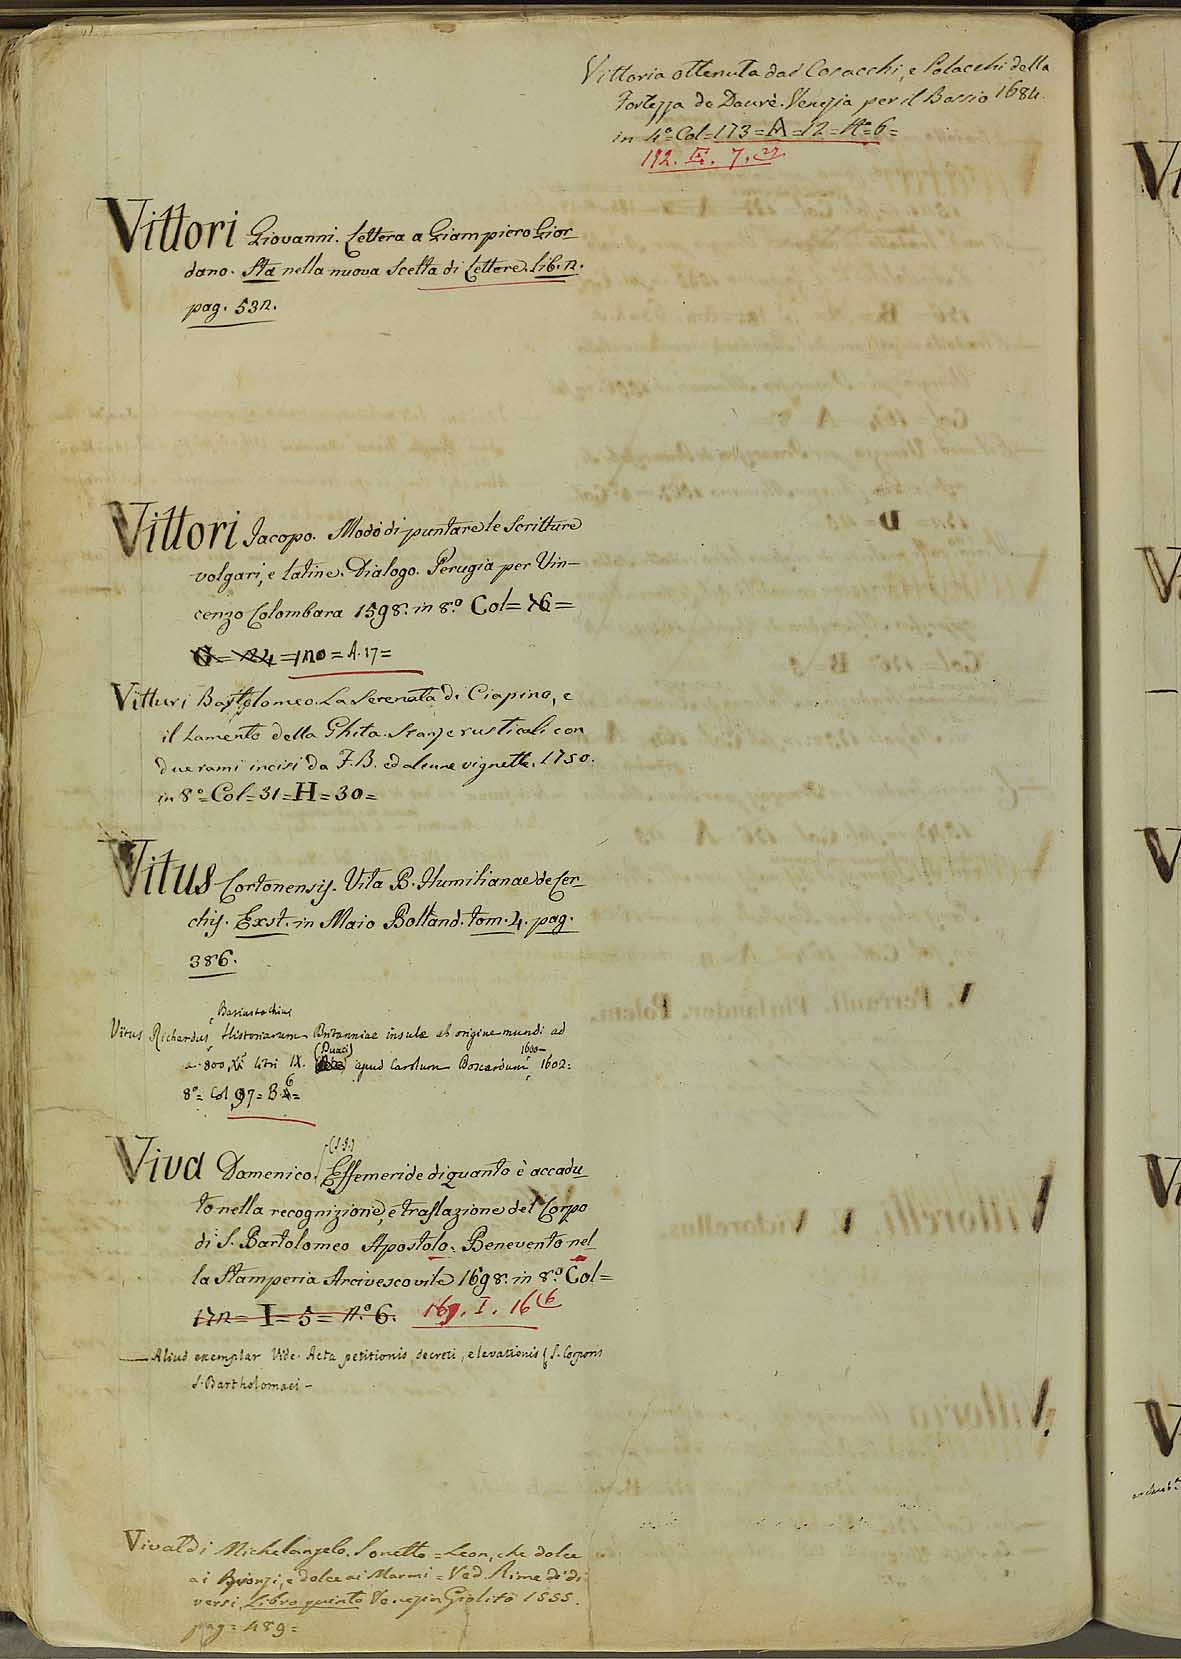 Vittoria ottenuta dai Cosacchi, e Polacchi della
Fortezza de Daurè. Venezia per il Bosio 1684.
in 4.º Col=173=A=12=N.º6=
192. E. 7. 27
Vittori Giovanni. Lettera a Giampiero Gior-
dano. Sta nella nuova Scelta di Lettere. lib. 2.
pag. 532.
Vittori Jacopo. Modo di puntare le Scritture
volgari, e latine. Dialogo. Perugia per Vin-
cenzo Colombara 1598. in 8.º Col=76=
G=24=120=A.17=
Vitturi Bartolomeo. La Serenata di Ciapino, e
il Lamento della Ghita. Stanze rusticali con
due rami incisi da F.B. ed alcune vignette. 1750.
in 8.º=Col=31=H=30=
Vitus Cortonensis. Vita B. Humilianae de Cer-
chijs. Exst. in Maio Bolland. tom. 4. pag.
386.
Basinstochius
Vitus Richardus Historiarum Britanniae insulae ab origine mundi ad
a. 800, libri IX. (Duaci) apud Carolum Boscardum 1600- 1602=
8.º= Col 97= B 6=
Viva Domenico. (S.J.) Effemeride di quanto è accadu-
to nella recognizione, e traslazione del Corpo
di S. Bartolomeo Apostolo. Benevento nel-
la Stamperia Arcivescovile 1698. in 8.º Col=
172=I=5=N.º6. 169. I. 16 (6
— Aliud exemplar Vide Acta petitionis, decreti, elevationis S. Corporis
S. Bartholomaei-
Vivaldi Michelangelo. Sonetto = Leon, che dolce
ai Bronzi, e dolce ai Marmi = Ved. Rime de' di
versi Libro quinto Venezia Giolito 1555.
pag=489=